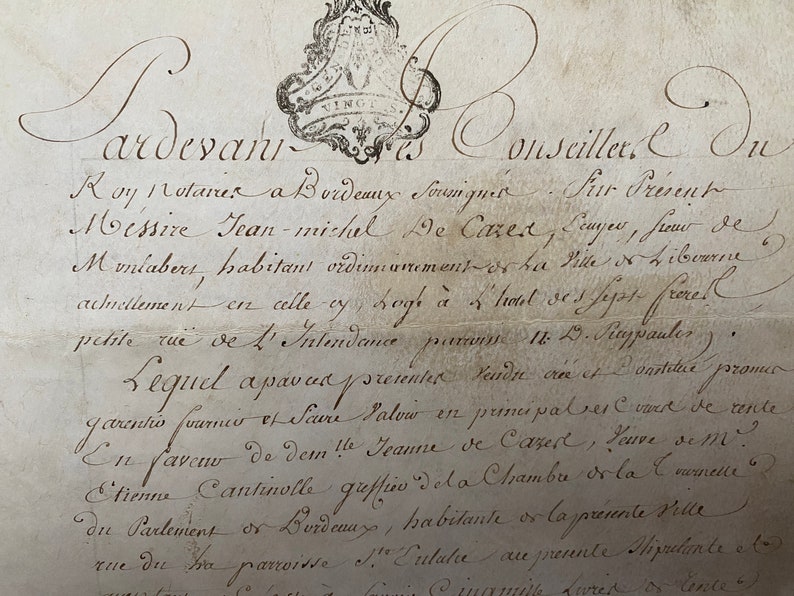 GEN DE BORDEAUX
VINGT S.
Pardevant Les Conseillers Du
Roy Notaires a Bordeaux soussignés. Fut Présent
Méssire Jean-michel De Cazes, Ecuyer, sieur de
Montabert, habitant ordinairement de La Ville de Libourne
actuellement en celle cy, Logé à L'hotel des Sept freres
petite ruë de L'Intendance parroisse N. D. Puypaulin,
Lequel a par ces presentes Vendu créé et Constitué promis
garentir fournir et faire Valoir en principal et Cours de rente
En faveur de dem.lle Jeanne de Cazes, Veuve de Mr.
Etienne Cantinolle greffier de la Chambre de la Tournelle
du Parlement de Bordeaux, habitante de la présente Ville
rue du parroisse Ste. Eulalie au presente stipulante et
à Savoir Cinq mille Livres de rente